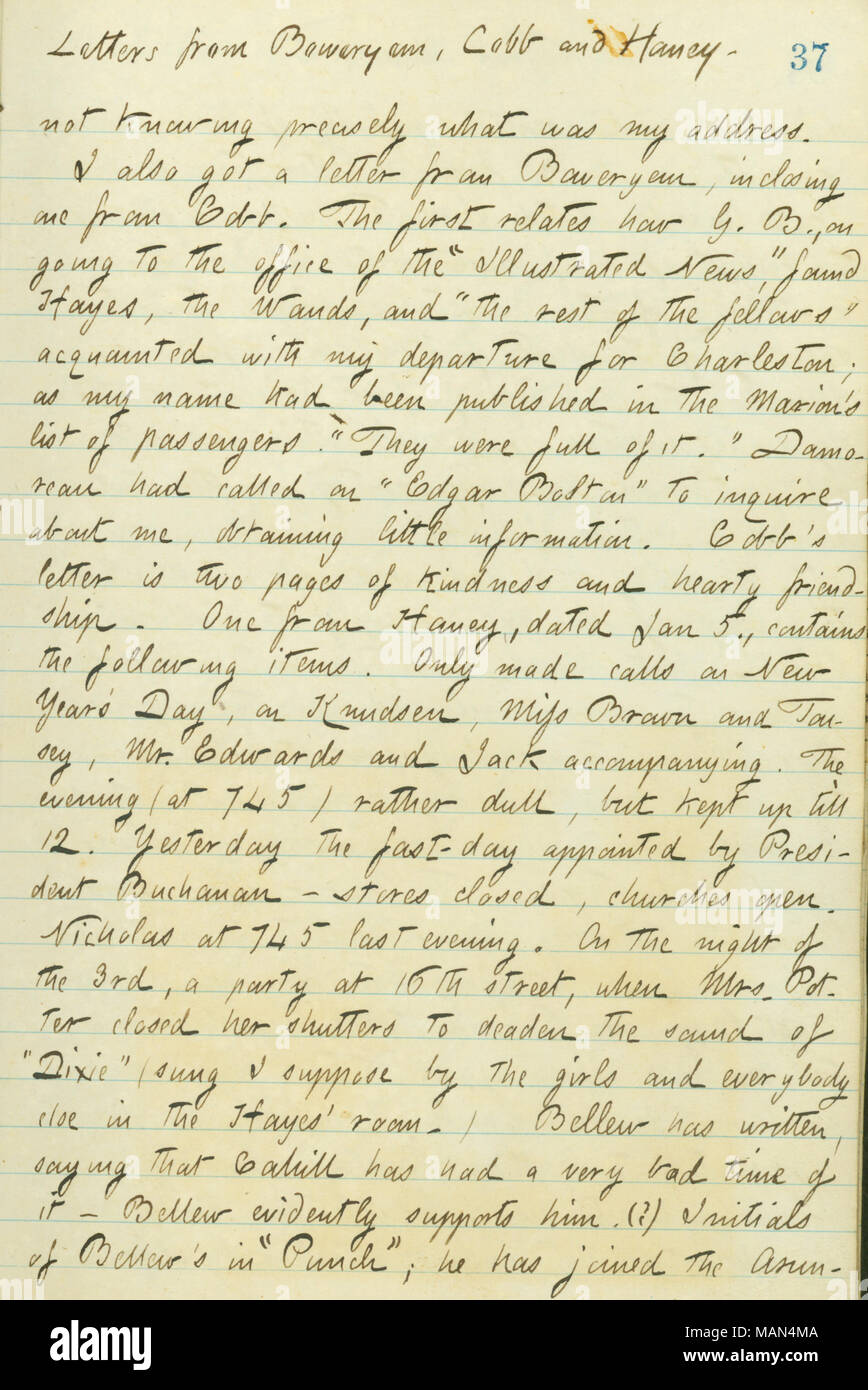 Letters from Boweryem, Cobb and Haney.
37
not knowing precisely what was my address.
I also got a letter from Boweryem, inclosing
one from Cobb. The first relates how G. B., on
going to the office of the "Illustrated News," found
Hayes, the Wauds, and "the rest of the fellows"
acquainted with my departure for Charleston;
as my name had been published in the Marion's
list of passengers. "They were full of it." Damo-
reau had called on "Edgar Bolton" to inquire
about me, obtaining little information. Cobb's
letter is two pages of kindness and hearty friend-
ship. One from Haney, dated Jan 5., contains
the following items. Only made calls on New
Year's Day, on Knudsen, Miss Brown and Tou-
sey, Mr. Edwards and Jack accompanying. The
evening (at 745) rather dull, but kept up till
12. Yesterday the fast-day appointed by Presi-
dent Buchanan - stores closed, churches open.
Nicholas at 745 last evening. On the night of
the 3rd, a party at 16th street, when Mrs. Pot-
ter closed her shutters to deaden the sound of
"Dixie" (sung I suppose by the girls and everybody
else in the Hayes' room.) Bellew has written,
saying that Cahill has had a very bad time of
it - Bellew evidently supports him. (?) Initials
of Bellew's in "Punch"; he has joined the Arun-
alamy
Image ID: MAN4MA
www.alamy.com